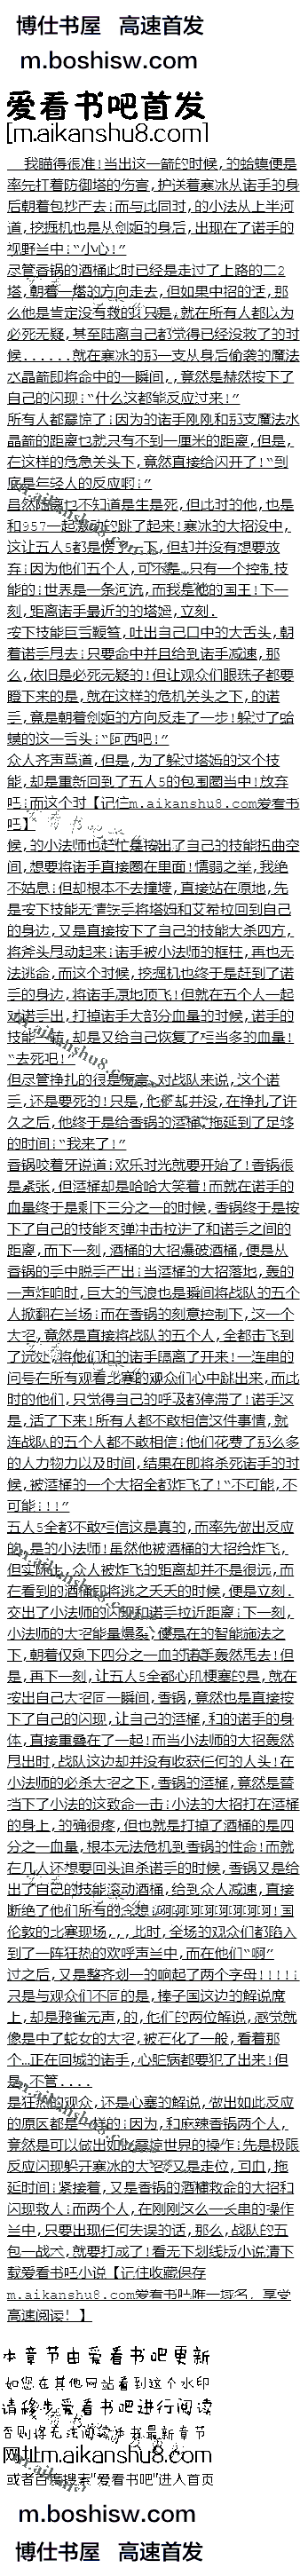 博仕书屋 高速首发
m.boshisw.com
爱看书吧首发
[m.aikanshu8.com]
我瞄得很准!当出这一箭的时候,的蛤蟆便是
率先扛着防御塔的伤害,护送着寒冰从诺手的身
后朝着包抄而去!而与此同时,的小法从上半河
道,挖掘机也是从剑姬的身后,出现在了诺手的
视野当中!“小心!”
尽管香锅的酒桶此时已经是走过了上路的二2
塔,朝着一塔的方向走去,但如果中招的话,那
么他是肯定没有救的!只是,就在所有人都以为
必死无疑,甚至陆离自己都觉得已经没救了的时
候......就在寒冰的那一支从身后偷袭的魔法
水晶箭即将命中的一瞬间,,竟然是赫然按下了
自己的闪现!“什么这都能反应过来!”
所有人都震惊了!因为的诺手刚刚和那支魔法水
晶箭的距离也就只有不到一厘米的距离,但是,
在这样的危急关头下,竟然直接给闪开了!“到
底是年轻人的反应啊!”
虽然陆离也不知道是生是死,但此时的他,也是
和957一起激动的跳了起来!寒冰的大招没中,
这让五人5都是愣了一下,但却并没有想要放
弃!因为他们五个人,可不是只有一个控制技
能的!世界是一条河流,而我是他的国王!下一
刻,距离诺手最近的的塔姆,立刻.
按下技能巨舌鞭笞,吐出自己口中的大舌头,朝
着诺手甩去!只要命中并且给到诺手减速,那
么,依旧是必死无疑的!但让观众们眼珠子都要
瞪下来的是,就在这样的危机关头之下,的诺
手,竟是朝着剑姬的方向反走了一步!躲过了蛤
蟆的这一舌头!“阿西吧!”
众人齐声骂道,但是,为了躲过塔姆的这个技
能,却是重新回到了五人5的包围圈当中!放弃
吧!而这个时【记住m.aikanshu8.com爱看书
吧】
候,的小法师也赶忙是按出了自己的技能扭曲空
间,想要将诺手直接圈在里面!懦弱之举,我绝
不姑息!但却根本不去撞墙,直接站在原地,先
是按下技能无情铁手将塔姆和艾希拉回到自己
的身边,又是直接按下了自己的技能大杀四方,
将斧头甩动起来!诺手被小法师的框柱,再也无
法逃命,而这个时候,挖掘机也终于是赶到了诺
手的身边,将诺手原地顶飞!但就在五个人一起
对诺手出,打掉诺手大部分血量的时候,诺手的
技能外转,却是又给自己恢复了相当多的血量!
“去死吧!”
但尽管挣扎的很是厉害,对战队来说,这个诺
手,还是要死的!只是,他们却并没,在挣扎了许
久之后,他终于是给香锅的酒桶,拖延到了足够
的时间!“我来了!”
香锅咬着牙说道!欢乐时光就要开始了!香锅很
是紧张,但酒桶却是哈哈大笑着!而就在诺手的
血量终于是剩下三分之一的时候,香锅终于是按
下了自己的技能肉弹冲击拉进了和诺手之间的
距离,而下一刻,酒桶的大招爆破酒桶,便是从
香锅的手中脱手而出!当酒桶的大招落地,轰的
一声炸响时,巨大的气浪也是瞬间将战队的五个
人掀翻在当场!而在香锅的刻意控制下,这一个
大招,竟然是直接将战队的五个人,全都击飞到
了远处!将他们和的诺手隔离了开来!一连串的
问号在所有观看比赛的观众们心中跳出来,而此
时的他们,只觉得自己的呼吸都停滞了!诺手这
是,活了下来!所有人都不敢相信这件事情,就
连战队的五个人都不敢相信!他们花费了那么多
的人力物力以及时间,结果在即将杀死诺手的时
候,被酒桶的一个大招全都炸飞了!“不可能,不
可能!!!”
五人5全都不敢相信这是真的,而率先做出反应
的,是的小法师!虽然他被酒桶的大招给炸飞,
但实际上,众人被炸飞的距离却并不是很远,而
在看到的酒桶即将逃之夭夭的时候,便是立刻.
交出了小法师的闪现和诺手拉近距离!下一刻,
小法师的大招能量爆裂,便是在的智能施法之
下,朝着仅剩下四分之一血的诺手轰然甩去!但
是,再下一刻,让五人5全都心肌梗塞的是,就在
按出自己大招同一瞬间,香锅,竟然也是直接按
下了自己的闪现,让自己的酒桶,和的诺手的身
体,直接重叠在了一起!而当小法师的大招轰然
甩出时,战队这边却并没有收获任何的人头!在
小法师的必杀大招之下,香锅的酒桶,竟然是替
挡下了小法的这致命一击!小法的大招打在酒桶
的身上,的确很疼,但也就是打掉了酒桶的是四
分之一血量,根本无法危机到香锅的性命!而就
在几人还想要回头追杀诺手的时候,香锅又是给
出了自己的技能滚动酒桶,给到众人减速,直接
断绝了他们所有的念想!啊啊啊啊啊啊啊啊!国
伦敦的比赛现场,,,此时,全场的观众们都陷入
到了一阵狂热的欢呼声当中,而在他们“啊”
过之后,又是整齐划一的响起了两个字母!!!!!
只是与观众们不同的是,棒子国这边的解说席
上,却是鸦雀无声,的,他们的两位解说,感觉就
像是中了蛇女的大招,被石化了一般,看着那
个…正在回城的诺手,心脏病都要犯了出来!但
是,不管....
是狂热的观众,还是心塞的解说,做出如此反应
的原因都是一样的!因为,和麻辣香锅两个人,
竟然是可以做出如此震惊世界的操作!先是极限
反应闪现躲开寒冰的大招又是走位,回血,拖
延时间!紧接着,又是香锅的酒桶救命的大招和
闪现救人!而两个人,在刚刚这么一长串的操作
当中,只要出现任何失误的话,那么,战队的五
包一战术,就要打成了!看无下划线版小说请下
载爱看书吧小说【记住收藏保存
m.aikanshu8.com爱看书吧唯一域名,享受
高速阅读!】
本章节由爱看书吧更新
如您在其他网站看到这个水印
请移步爱看书吧进行阅读
否则将无法阅读本书最新章节
网址m.aikanshu8.com
或者百度搜索“爱看书吧”进入首页
m.boshisw.com
博仕书屋 高速首发